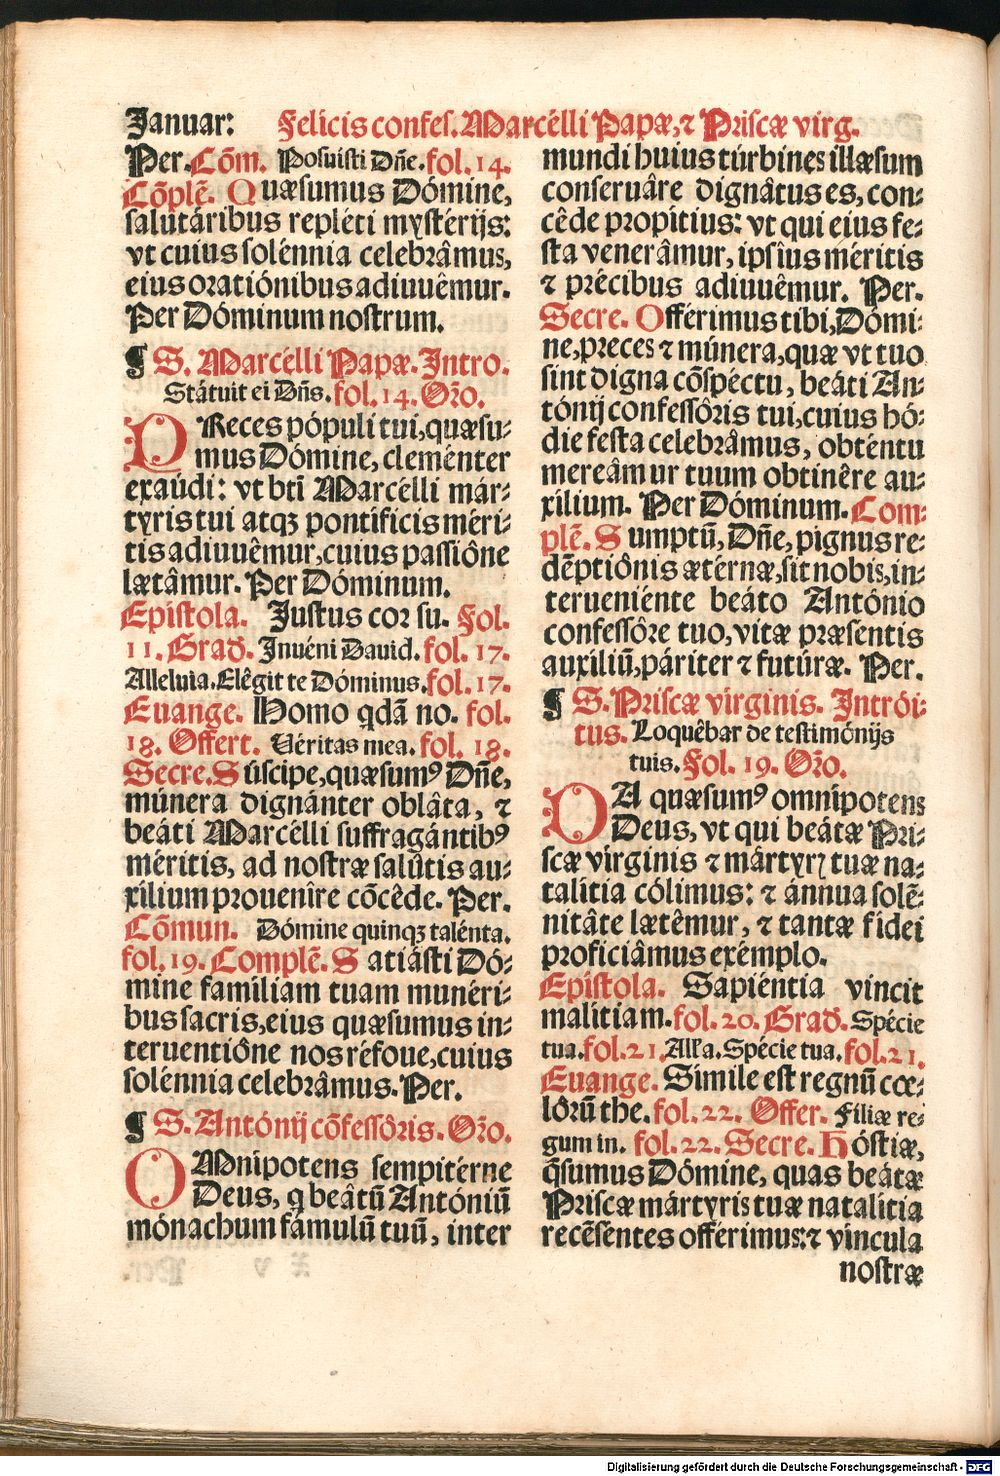 Januar: Felicis confes. Marcélli Papæ, ⁊ Priscæ virg.
Per. Cõm. Posuisti Dñe. fol. 14.
Cõplẽ. Quæsumus Dómine,
salutáribus repléti mystérijs:
vt cuius solénnia celebrâmus,
eius oratiónibus adiuuêmur.
Per Dóminum nostrum.
¶ S. Marcélli Papæ. Intro.
Státuit ei Dñs. fol. 14. Oro.
PReces pópuli tui, quæsu-
mus Dómine, cleménter
exaúdi: vt bti Marcélli már-
tyris tui atqȝ pontíficis méri-
tis adiuuêmur, cuius passiône
lætâmur. Per Dóminum.
Epistola. Justus cor su. Fol.
11. Grad. Inuéni Dauid. fol. 17.
Alleluia. Elêgit te Dóminus. fol. 17.
Euange. Homo qdã no. fol.
18. Offert. Véritas mea. fol. 18.
Secre. Súscipe, quæsumꝰ Dñe,
múnera dignánter oblâta, ⁊
beáti Marcélli suffragántibꝰ
méritis, ad nostræ salûtis au-
xílium prouenîre cõcêde. Per.
Cõmun. Dómine quinqȝ talénta.
fol. 19. Complẽ. Satiásti Dó-
mine famíliam tuam munéri-
bus sacris, eius quæsumus in-
teruentiône nos réfoue, cuius
solénnia celebrâmus. Per.
¶ S. Antónij cõfessôris. Oro.
OMnípotens sempitérne
Deus, q beâtũ Antóniũ
mónachum fámulũ tuũ, inter
mundi huius túrbines illæsum
conseruâre dignâtus es, con-
cêde propítius: vt qui eius fe-
sta venerâmur, ipsîus méritis
⁊ précibus adiuuêmur. Per.
Secre. Offérimus tibi, Dómi-
ne, preces ⁊ múnera, quæ vt tuo
sint digna cõspéctu, beáti An-
tónij confessôris tui, cuius hó-
die festa celebrâmus, obténtu
mereâmur tuum obtinêre au-
xílium. Per Dóminum. Com-
plẽ. Sumptũ, Dñe, pignus re-
dẽptiônis ætérnæ, sit nobis, in-
terueniénte beáto António
confessôre tuo, vitæ præsentis
auxíliũ, páriter ⁊ futúræ. Per.
¶ S. Priscæ virginis. Intrói-
tus. Loquêbar de testimónijs
tuis. Fol. 19. Oro.
DA quæsumꝰ omnípotens
Deus, vt qui beátæ Pri-
scæ vírginis ⁊ mártyrꝭ tuæ na-
talítia cólimus: ⁊ ánnua solẽ-
nitâte lætêmur, ⁊ tantæ fídei
proficiâmus exémplo.
Epistola. Sapiéntia vincit
malítiam. fol. 20. Grad. Spécie
tua. fol. 21. Alla. Spécie tua. fol. 21.
Euange. Símile est regnũ cœ-
lôrũ the. fol. 22. Offer. Fíliæ re-
gum in. fol. 22. Secre. Hóstiæ,
q̃sumus Dómine, quas beátæ
Priscæ mártyris tuæ natalítia
recẽséntes offérimus: ⁊ víncula
nostræ
Digitalisierung gefördert durch die Deutsche Forschungsgemeinschaft - DFG